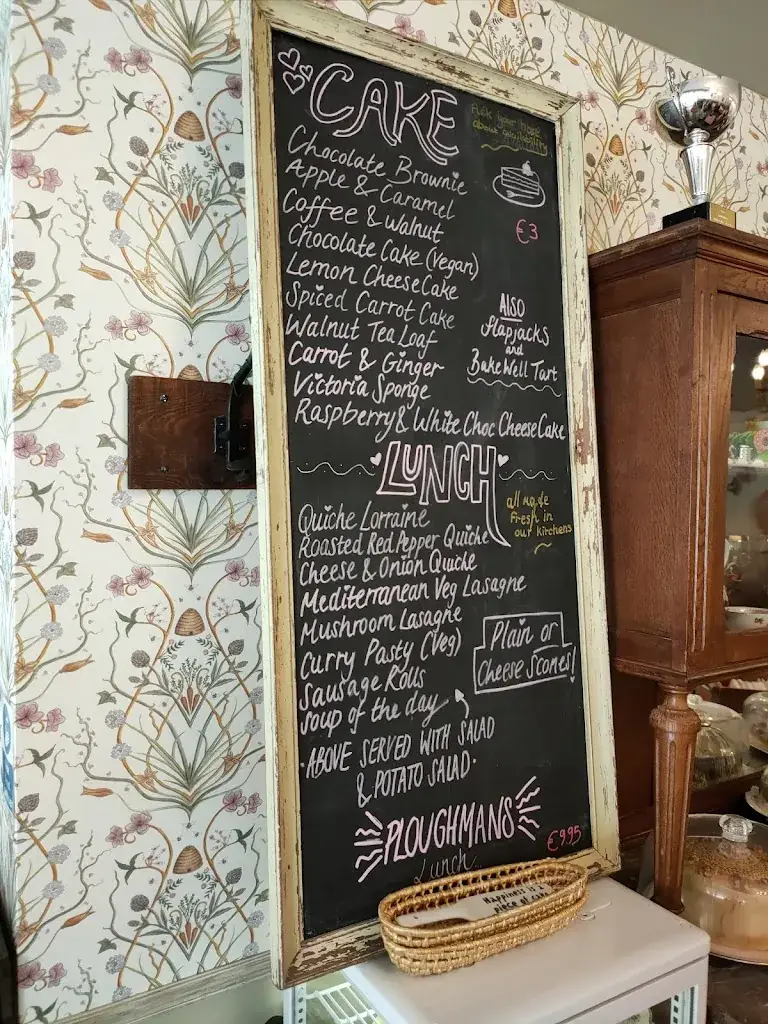 CAKE
Ask your host
about availability
€3
Chocolate Brownie
Apple & Caramel
Coffee & Walnut
Chocolate Cake (Vegan)
Lemon CheeseCake
Spiced Carrot Cake
Walnut Tea Loaf
Carrot & Ginger
Victoria Sponge
Raspberry & White Choc CheeseCake
ALSO
Flapjacks
and
BakeWell Tart
LUNCH
all made
fresh in
our kitchens
Quiche Lorraine
Roasted Red Pepper Quiche
Cheese & Onion Quiche
Mediterranean Veg Lasagne
Mushroom Lasagne
Curry Pasty (Veg)
Sausage Rolls
Soup of the day
Plain or
Cheese Scones!
·ABOVE SERVED WITH SALAD
& POTATO SALAD·
PLOUGHMANS
Lunch...
€9.95
Happiness is a
piece of cake